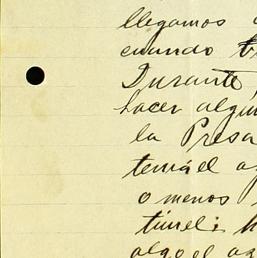 llegamos
cuando
Durante
hacer algun
la Presa
temá el a
o menos
túnel; h
algo el ag